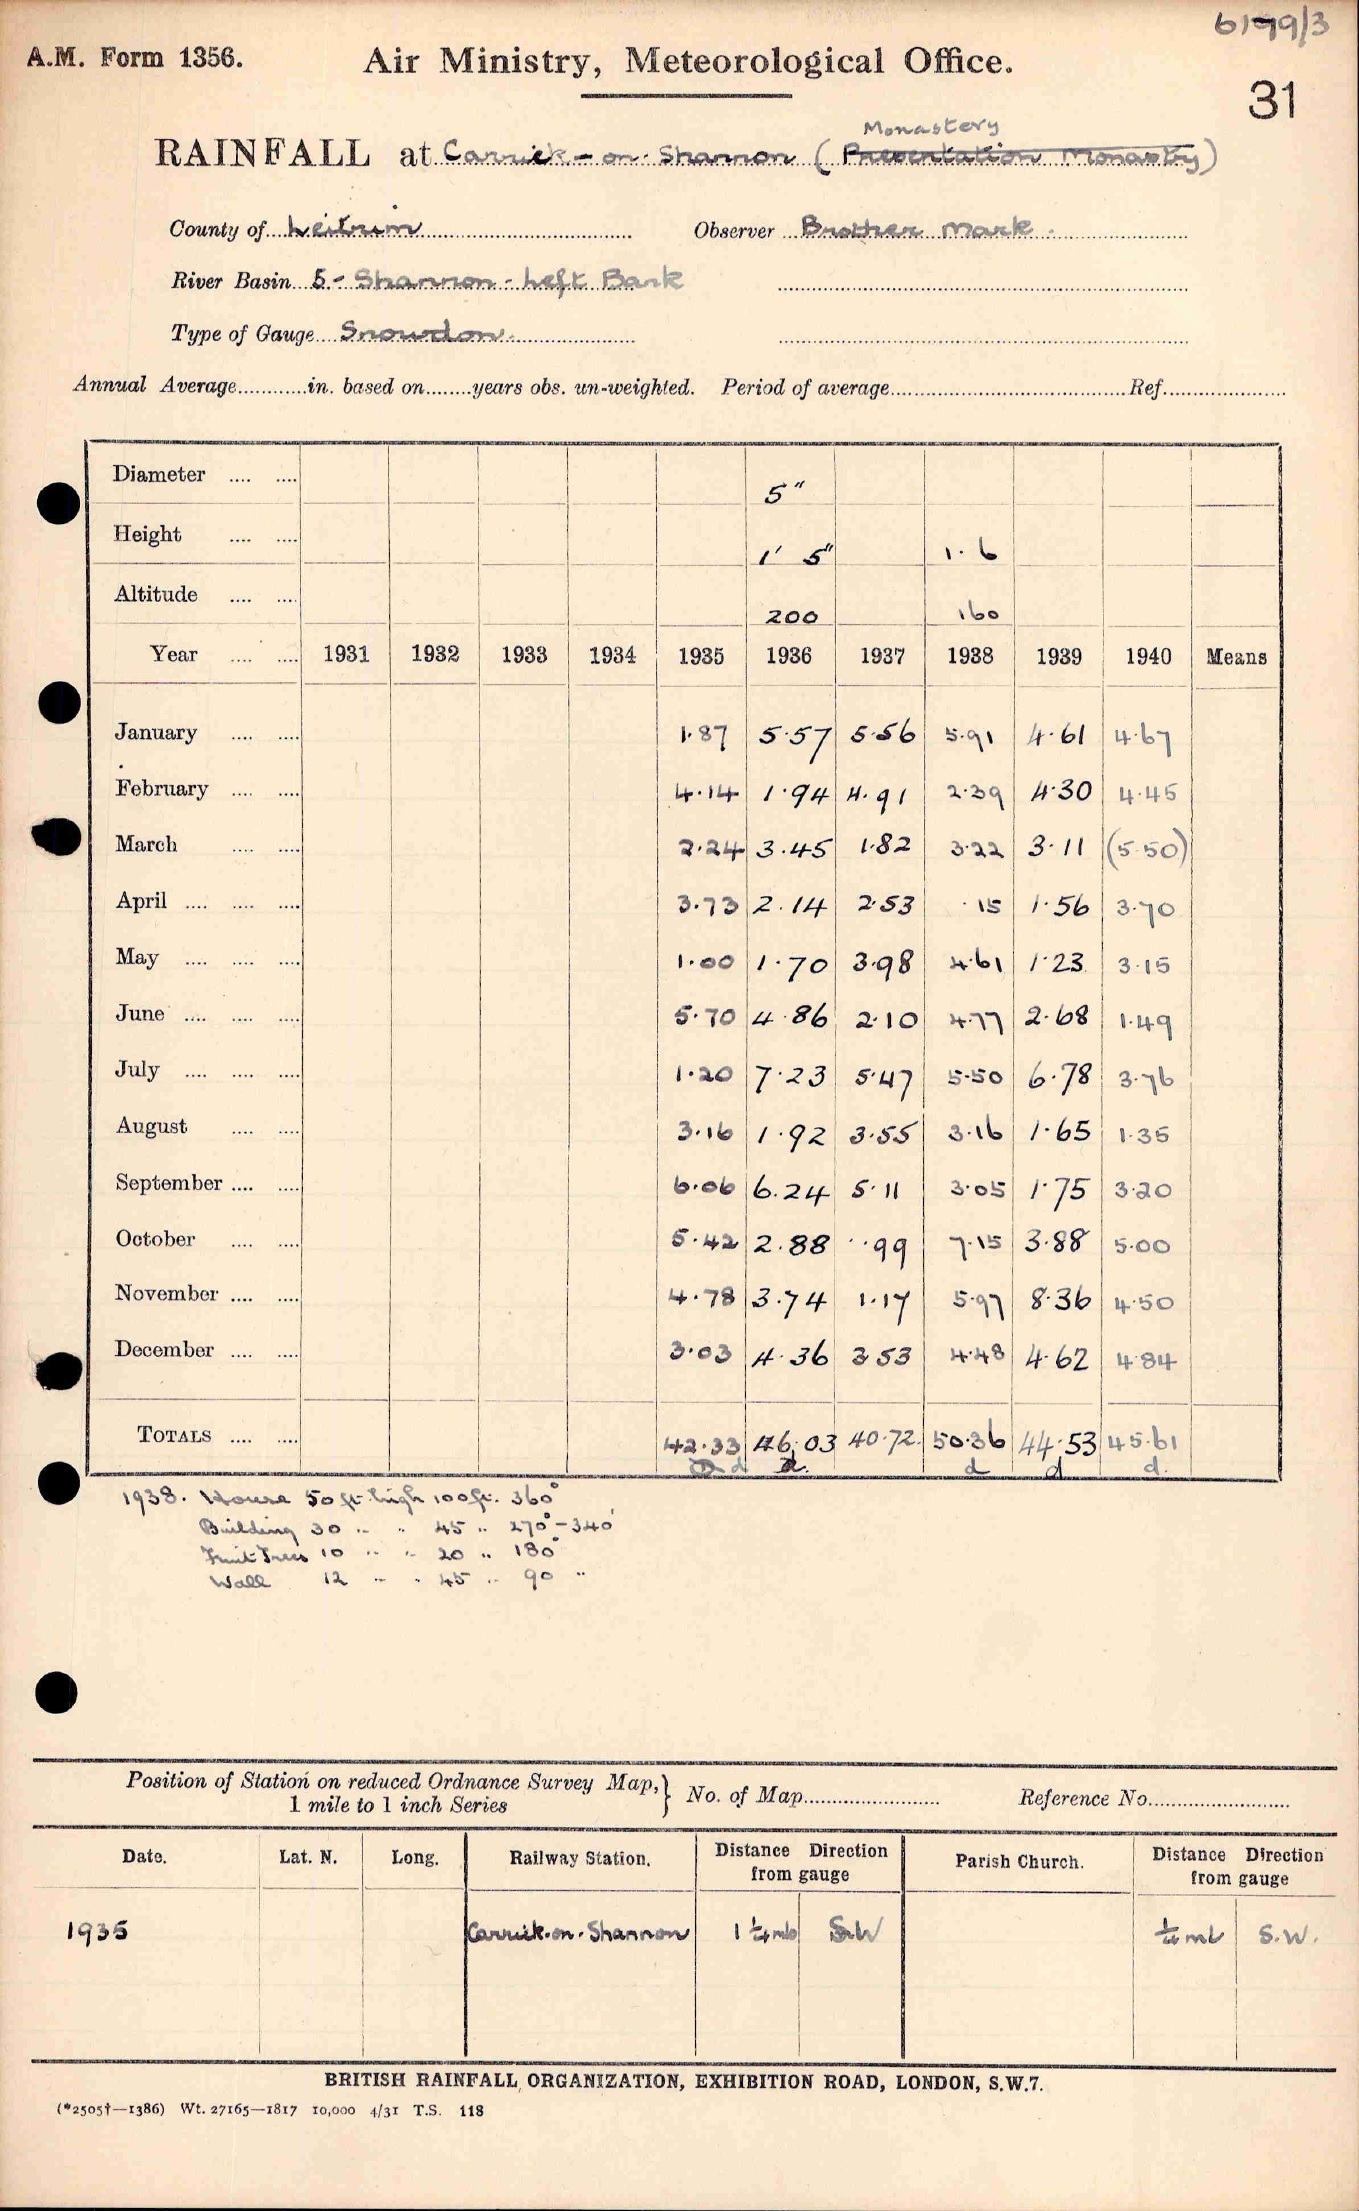 6179/3
A.M. Form 1356. Air Ministry, Meteorological Office.
31
Monastery
RAINFALL at Carrick-on-Shannon (Presentation Monastry)
County of Leitrim Observer Brother Mark.
River Basin 5 - Shannon - Left Bank
Type of Gauge Snowdon.
Annual Average............in. based on........years obs. un-weighted. Period of average........................................Ref.....................
Diameter .... .... 5"
Height .... .... 1' 5" 1·6
Altitude .... .... 200 160
Year .... .... 1931 1932 1933 1934 1935 1936 1937 1938 1939 1940 Means
January .... .... 1·87 5·57 5·56 5·91 4·61 4·67
February .... .... 4·14 1·94 4·91 2·39 4·30 4·45
March .... .... 2·24 3·45 1·82 3·22 3·11 (5·50)
April .... .... .... 3·73 2·14 2·53 ·15 1·56 3·70
May .... .... .... 1·00 1·70 3·98 4·61 1·23 3·15
June .... .... .... 5·70 4·86 2·10 4·77 2·68 1·49
July .... .... .... 1·20 7·23 5·47 5·50 6·78 3·76
August .... .... 3·16 1·92 3·55 3·16 1·65 1·35
September .... .... 6·06 6·24 5·11 3·05 1·75 3·20
October .... .... 5·42 2·88 ·99 7·15 3·88 5·00
November .... .... 4·78 3·74 1·17 5·97 8·36 4·50
December .... .... 3·03 4·36 3·53 4·48 4·62 4·84
TOTALS .... .... 42·33 46·03 40·72 50·36 44·53 45·61
d d. d d d.
1938. House 50 ft. high 100 ft. 360°
Building 30 " " 45 " 270°-340°
Fruit Trees 10 " " 20 " 180°
Wall 12 " " 45 " 90 "
Position of Station on reduced Ordnance Survey Map,} No. of Map........................ Reference No.........................
1 mile to 1 inch Series
Date. Lat. N. Long. Railway Station. Distance Direction from gauge Parish Church. Distance Direction from gauge
1935 Carrick-on-Shannon 1 ¼ ml SW ¼ ml S.W.
BRITISH RAINFALL ORGANIZATION, EXHIBITION ROAD, LONDON, S.W.7.
(*2505†—1386) Wt. 27165—1817 10,000 4/31 T.S. 118